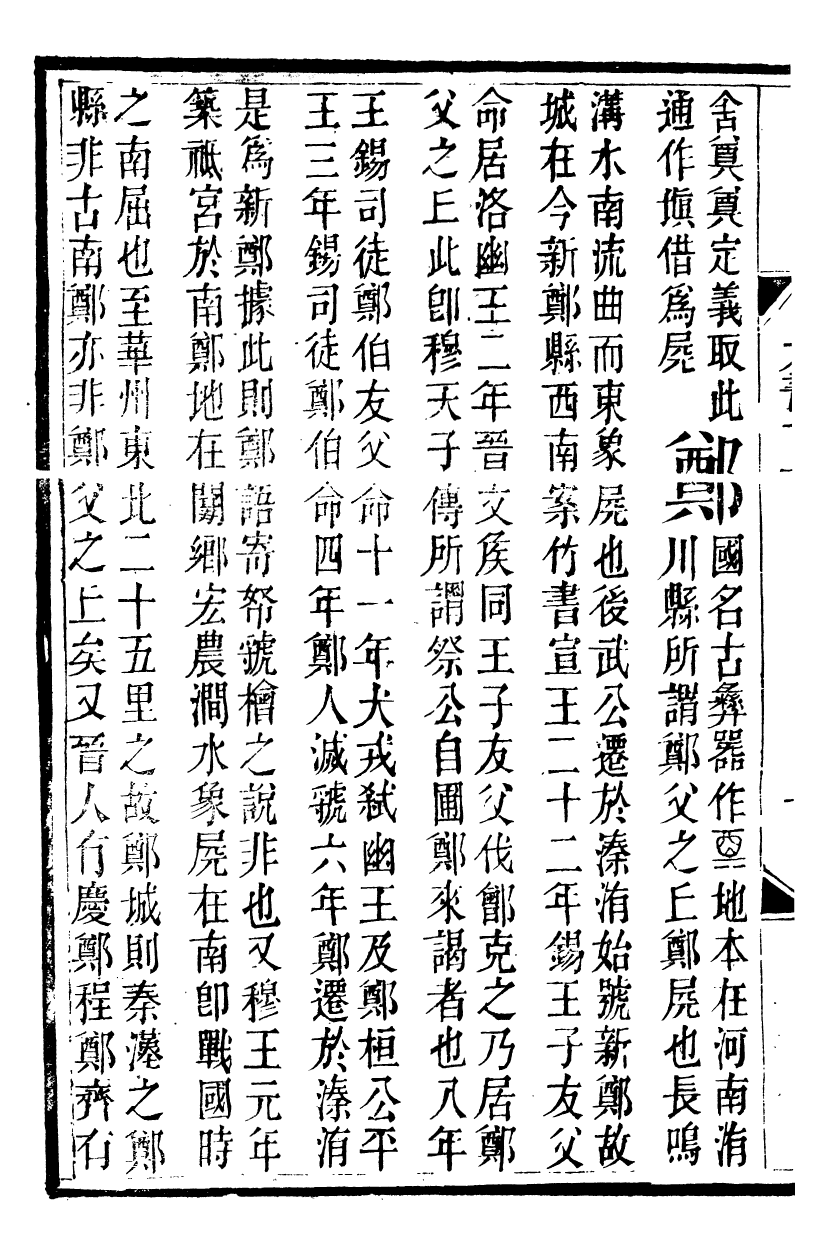 舍奠奠定義取此
通作愼借爲屍
鄭
國名古彝器作 地本在河南洧
川縣所謂鄭父之丘鄭屍也長鳴
溝水南流曲而東象屍也後武公遷於溱洧始號新鄭故
城在今新鄭縣西南案竹書宣王二十二年錫王子友父
命居洛幽王二年晉文侯同王子友父伐鄶克之乃居鄭
父之丘此卽穆天子傳所謂祭公自圃鄭來謁者也八年
王錫司徒鄭伯友父命十一年犬戎弒幽王及鄭桓公平
王三年錫司徒鄭伯命四年鄭人滅虢六年鄭遷於溱洧
是爲新鄭據此則鄭語寄帑虢檜之說非也又穆王元年
築祗宮於南鄭地在閿鄉宏農澗水象屍在南卽戰國時
之南屈也至華州東北二十五里之故鄭城則秦漢之鄭
縣非古南鄭亦非鄭父之丘矣又晉人有慶鄭程鄭齊有